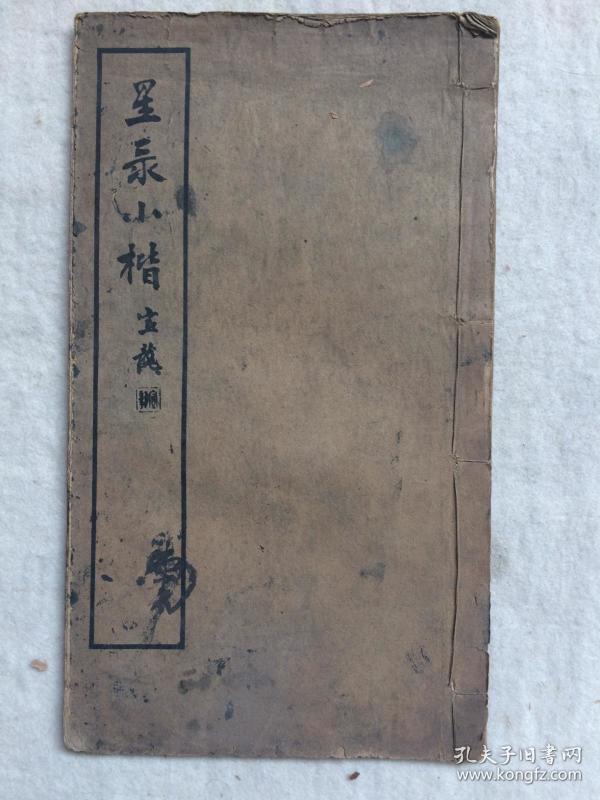 星彔小楷
宣龔
孔夫子旧书网
www.kongfz.com